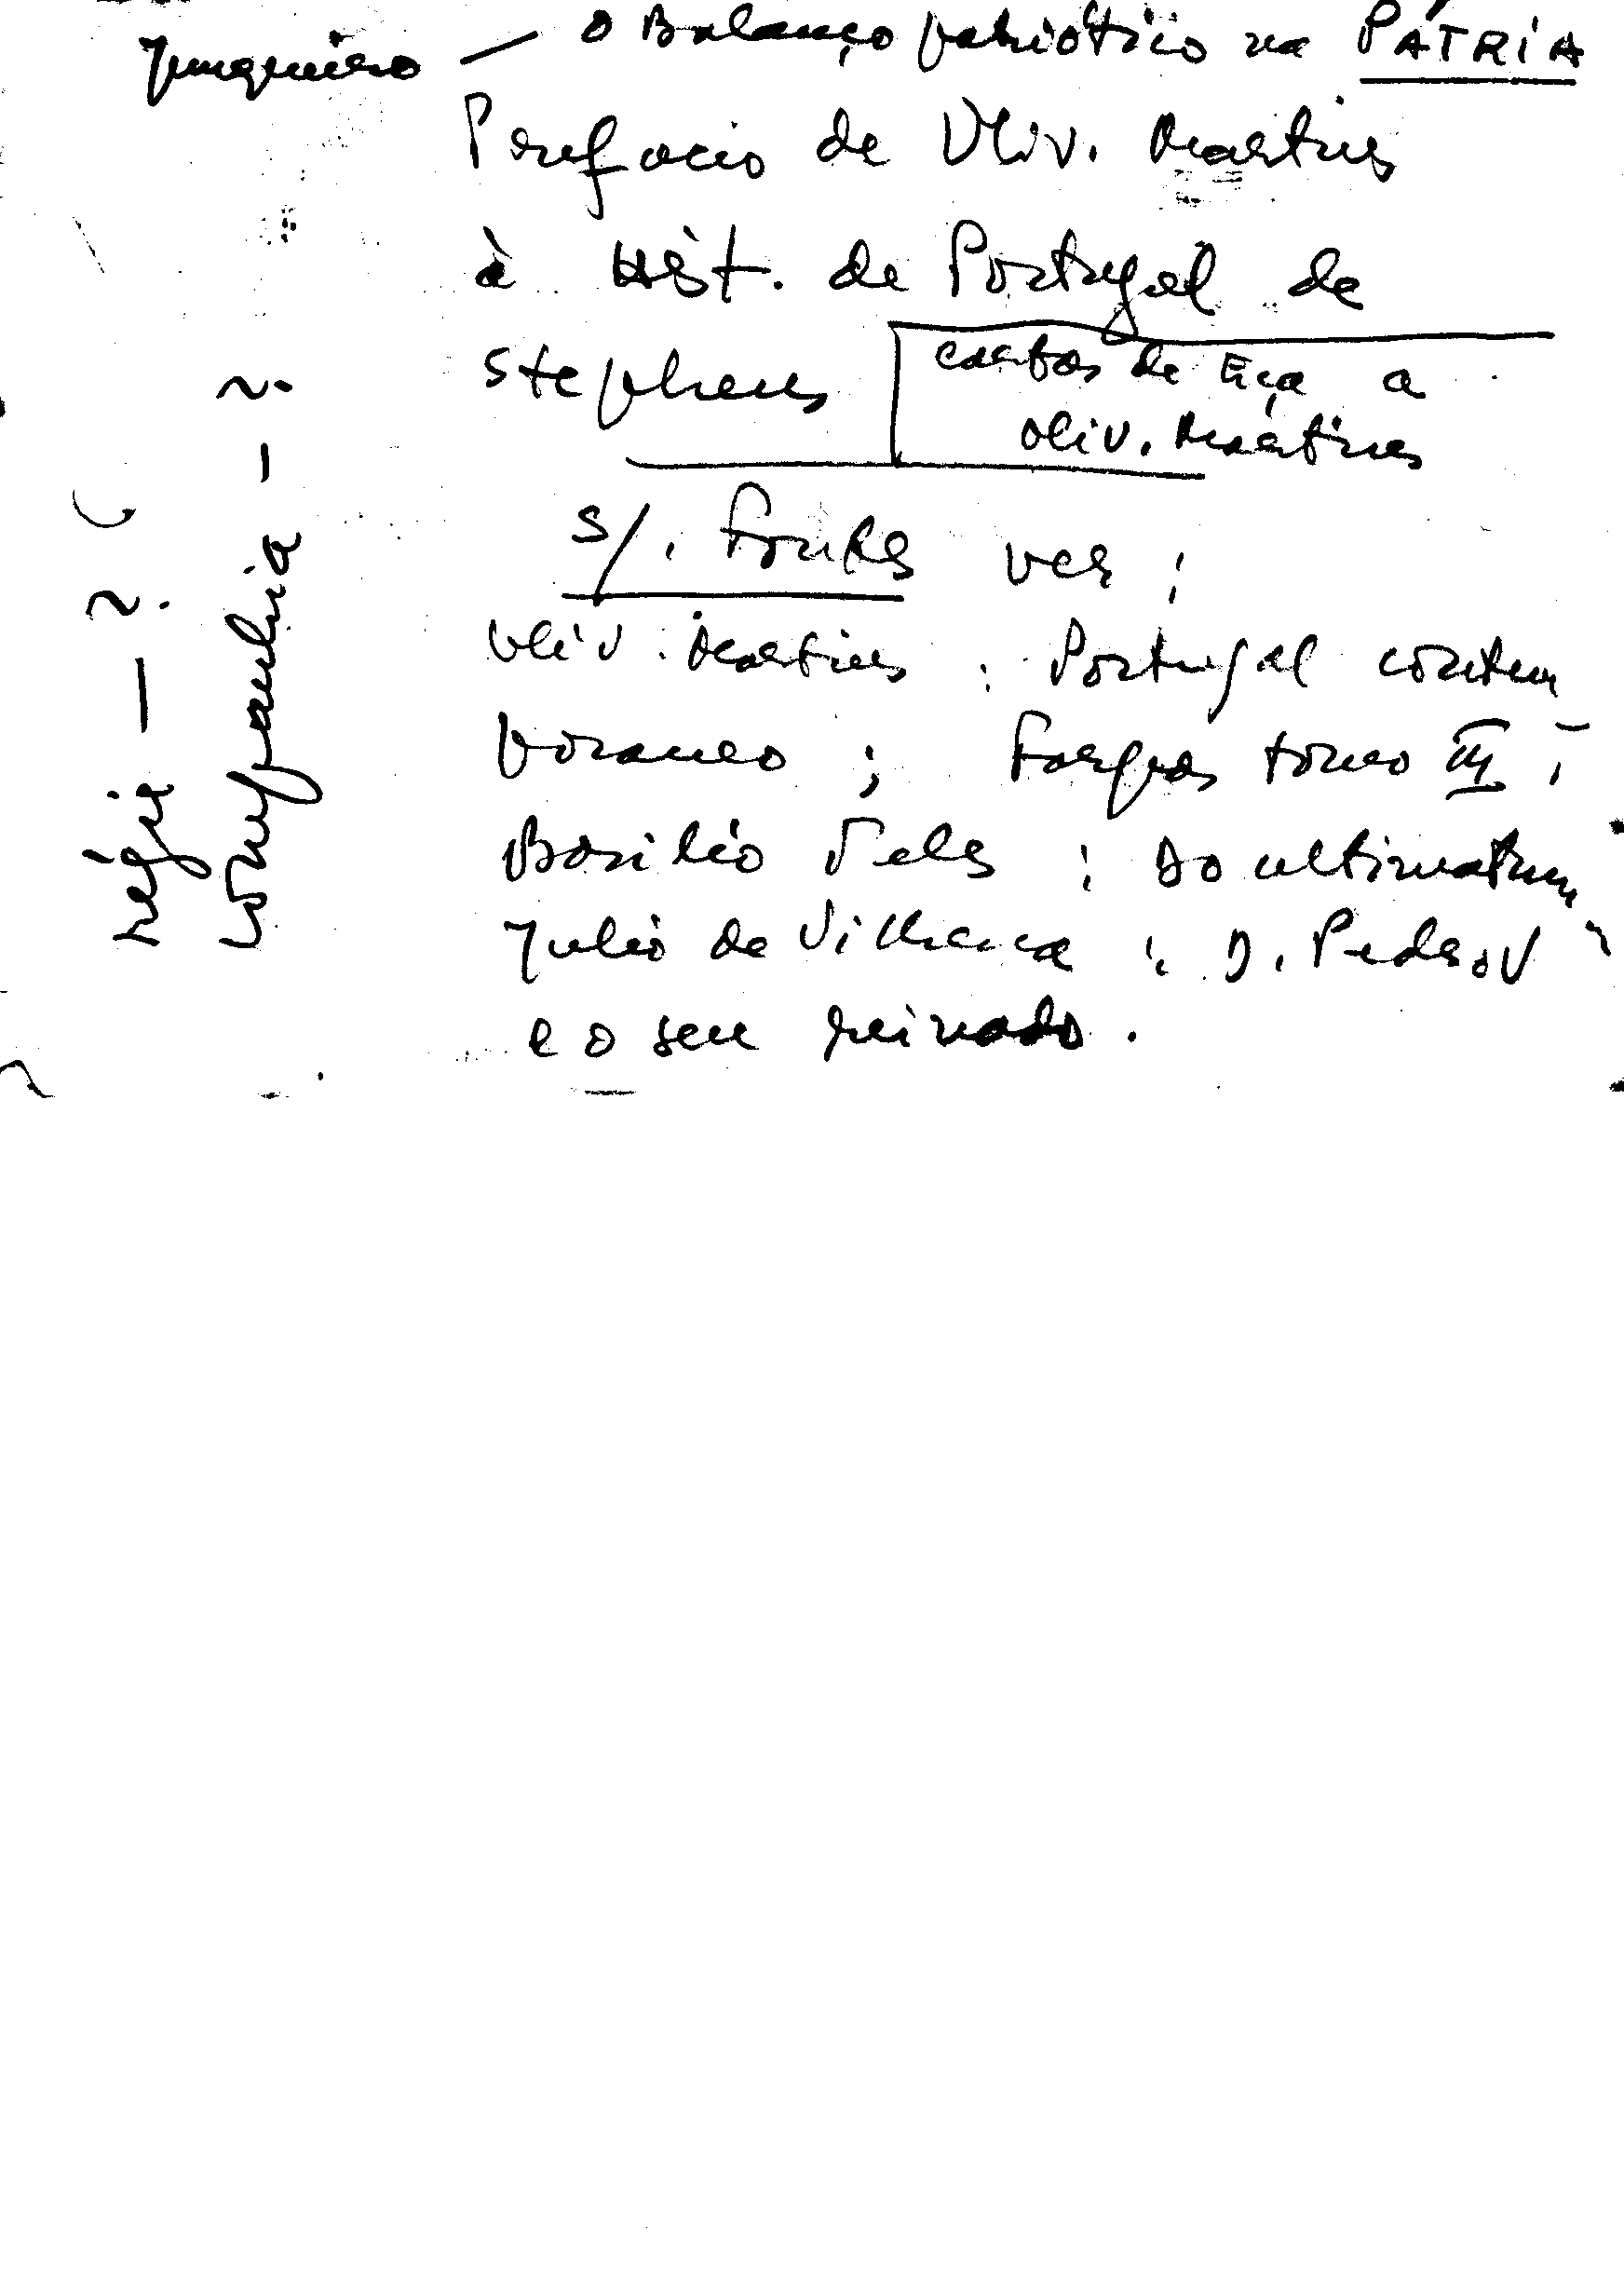 Junqueiro — O Balanço patriótico na PÁTRIA
Prefacio de Oliv. Martins
à Hist. de Portugal de
Stephens
cartas de Eça a
Oliv. Martins
s/. Fontes ver:
Oliv. Martins: Portugal contem
poraneo; Farpas tomo III;
Basilio Teles: Do ultimatum;
Julio de Vilhena: D. Pedro V
e o seu reinado.
régie — 2.
companhia — 2.